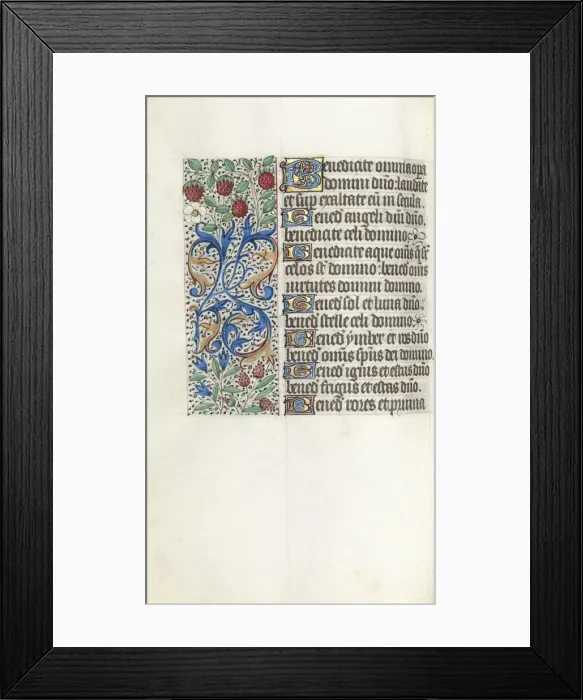 Benedicite omnia opa
domini dño: laudate
et sup exaltate eũ in secula.
Bened angeli dñi dño.
benedicite celi domino.
Benedicite aque om̃s q̃ sr̃
celos st̃ domino: bened om̃s
uirtutes domini domino.
Bened sol et luna dño.
bened stelle celi domino.
Bened ymber et ros dño
bened om̃s sp̃us dei domino.
Bened ignis et estus dño
bened frigus et estas dño.
Bened rores et pruina